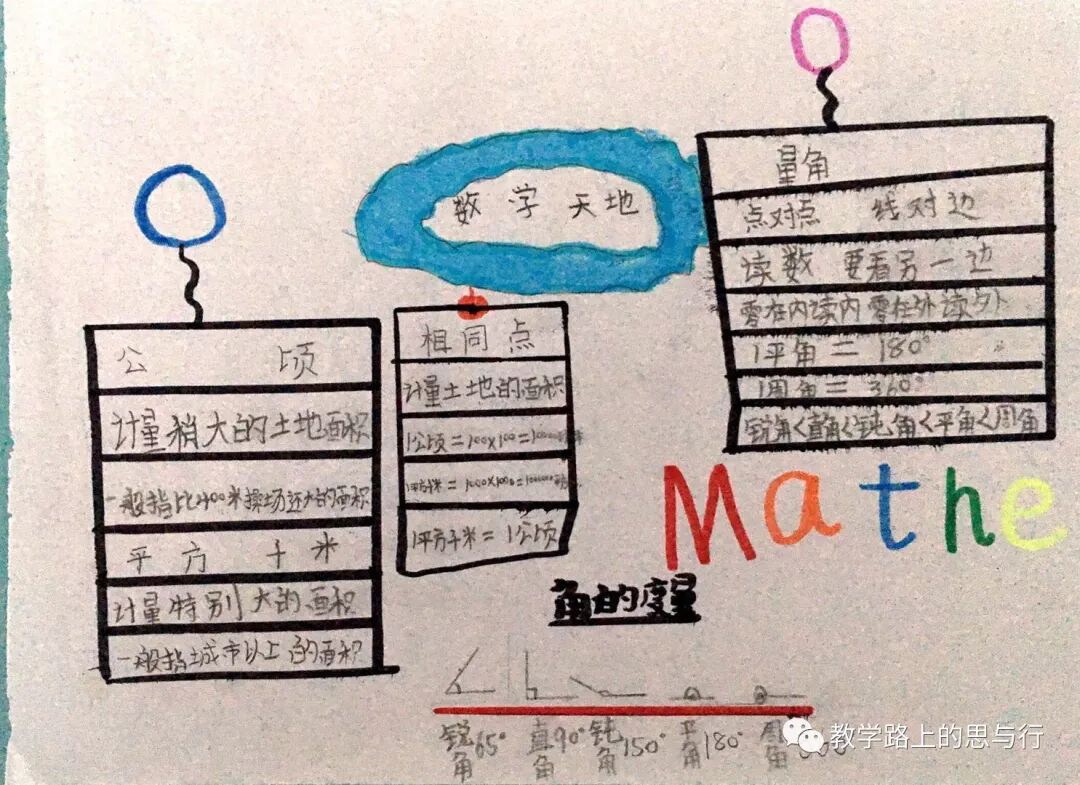 数学天地
公顷
计量稍大的土地面积
一般指比400米操场还大的面积
平方千米
计量特别大的面积
一般指城市以上的面积
相同点
计量土地的面积
1公顷=100×100=10000
1平方千米=1000×1000=1000000
1平方千米=1公顷
量角
点对点 线对边
读数 要看另一边
零在内读内 零在外读外
1平角=180°
1周角=360°
锐角<直角<钝角<平角<周角
Mathe
角的度量
锐角65° 直角90° 钝角150° 平角180° 周角
教学路上的思与行